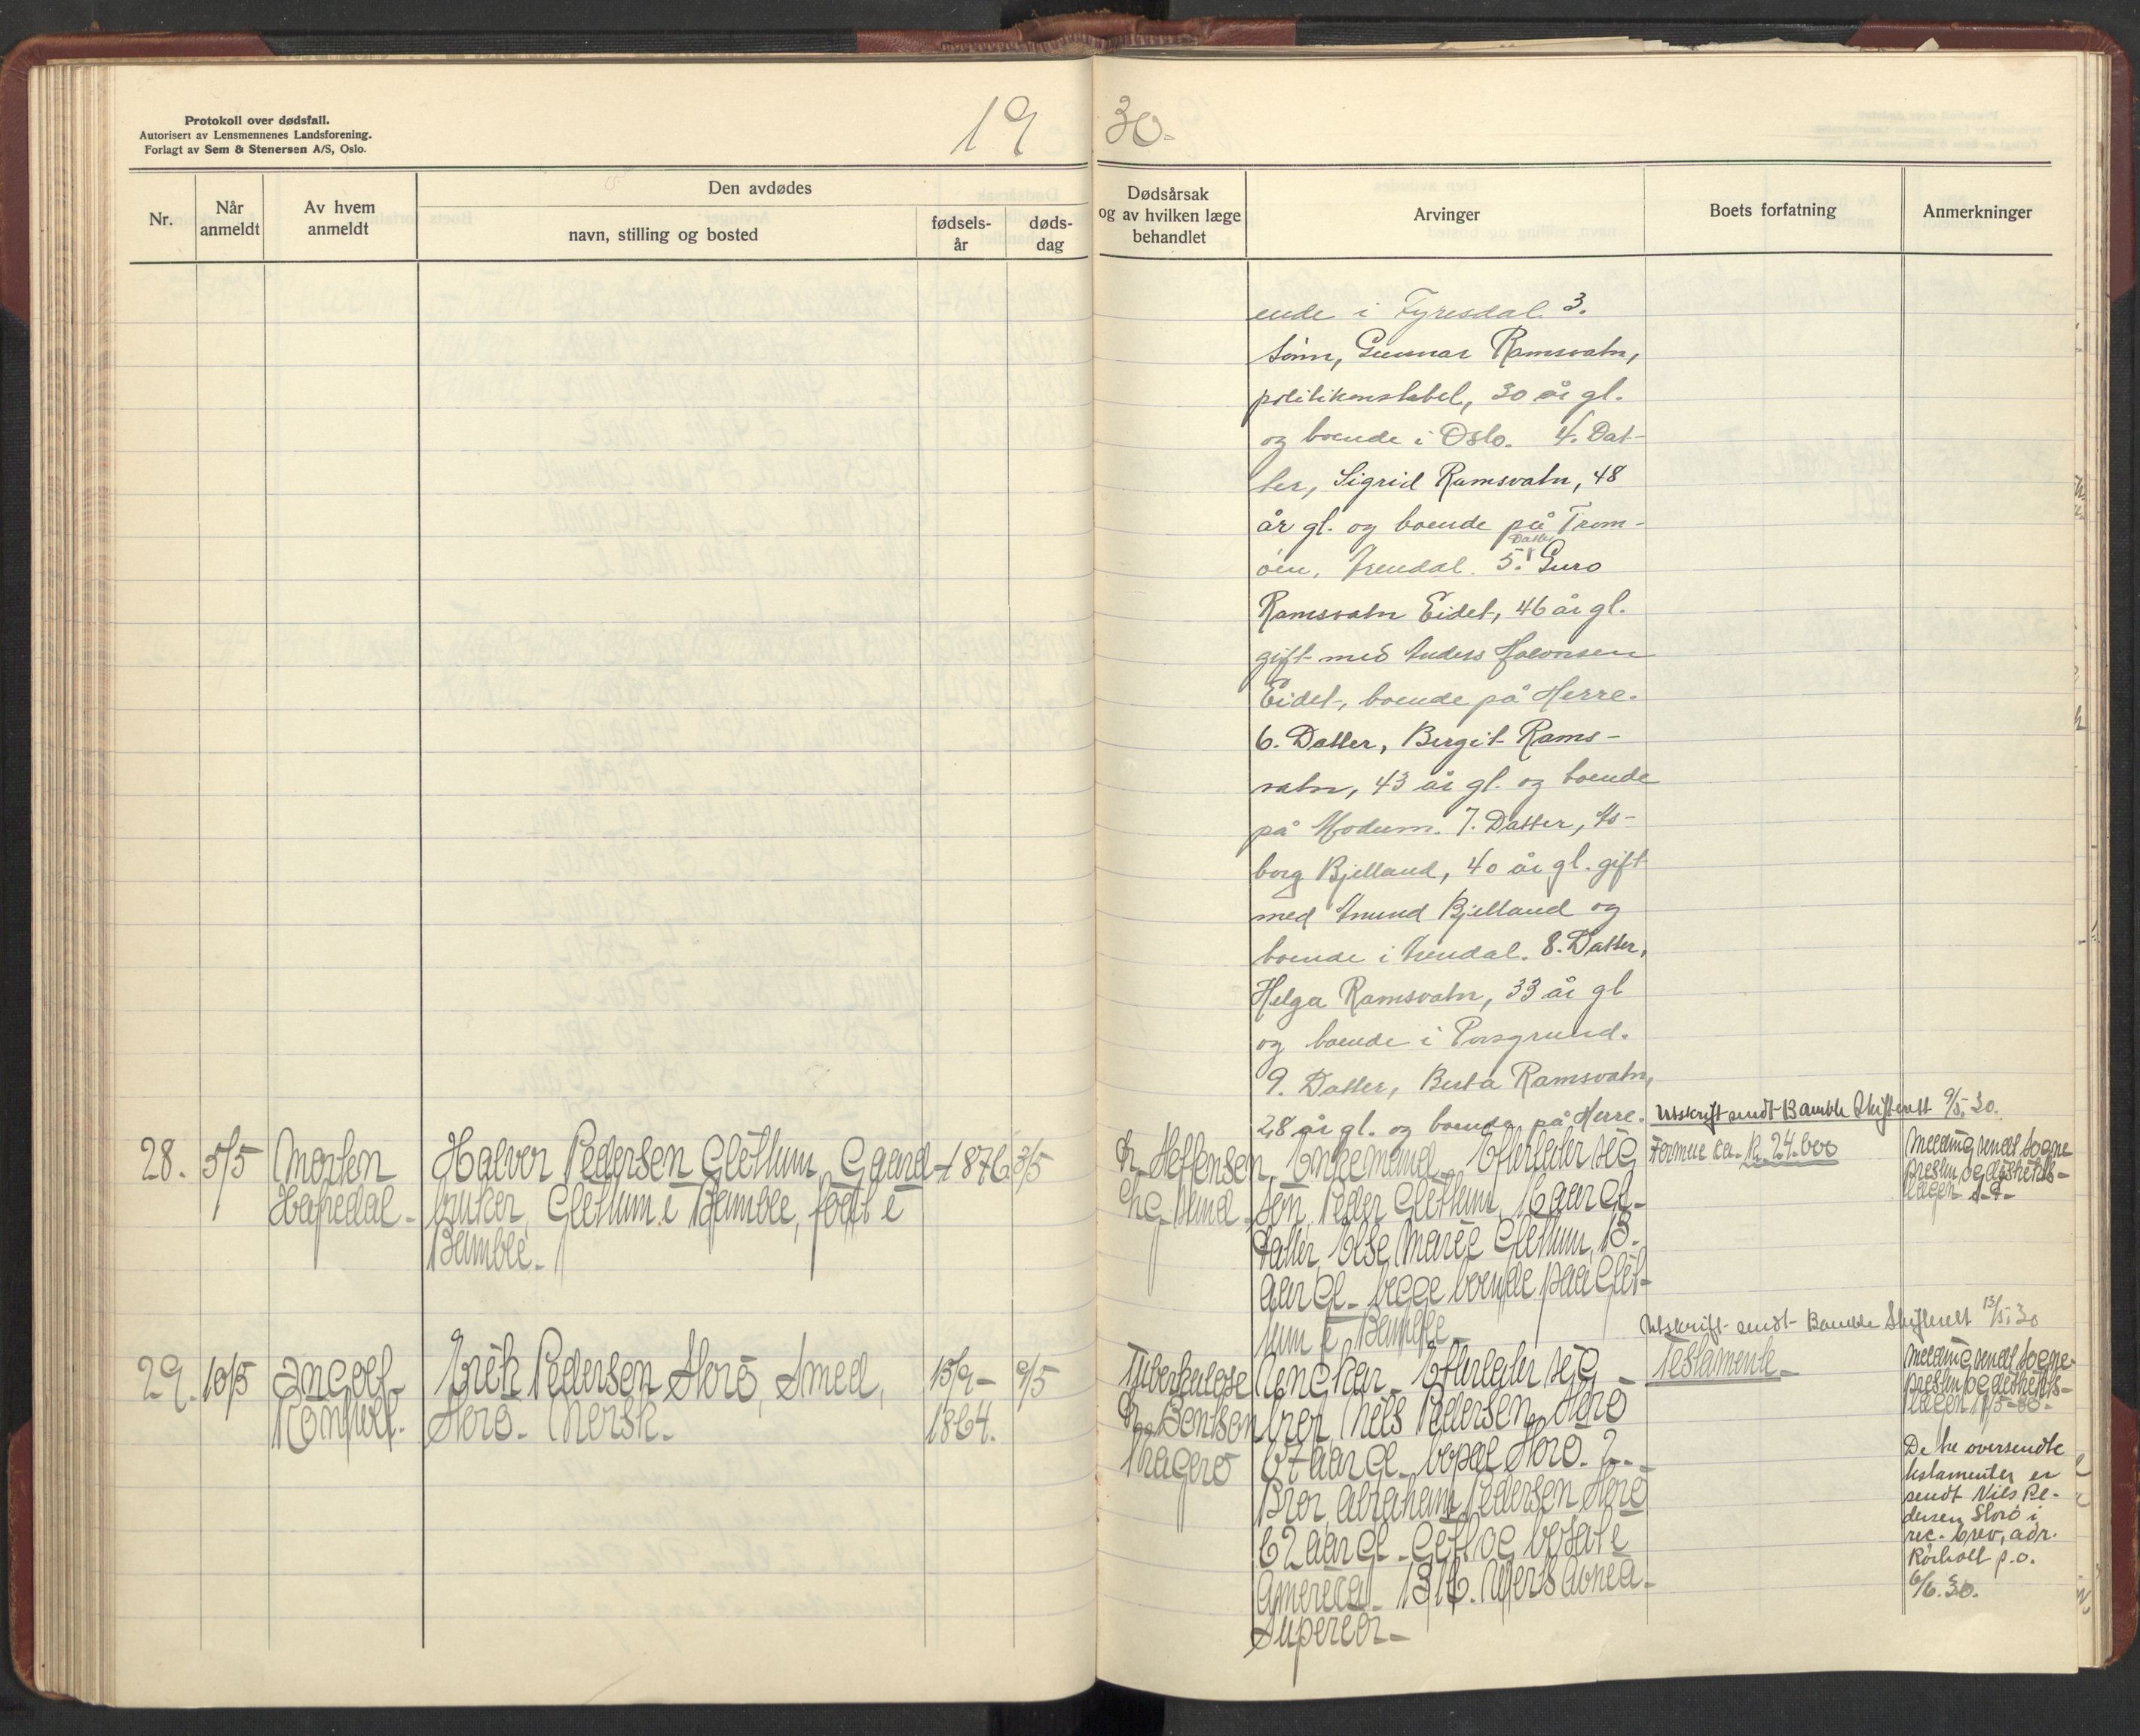 Protokoll over dødsfall.
Autorisert av Lensmennenes Landsforening.
Forlagt av Sem & Stenersen A/S, Oslo.
19 30.
Nr.
Når anmeldt
Av hvem anmeldt
Den avdødes
navn, stilling og bosted
fødsels-år
døds-dag
Dødsårsak og av hvilken læge behandlet
Arvinger
Boets forfatning
Anmerkninger
ende i Fyresdal 3.
Sönn, Gunnar Ramsvatn,
politikonstabel, 30 år gl.
og boende i Oslo. 4. Dat-
ter, Sigrid Ramsvatn, 48
år gl. og boende på Trom-
öen, Arendal. 5. Datter Guro
Ramsvatn Eidet, 46 år gl.
gift med Anders Halvorsen
Eidet, boende på Herre.
6. Datter, Birgit Rams-
vatn, 43 år gl. og boende
på Modum. 7. Datter, As-
borg Bjelland, 40 år gl. gift
med Anund Bjelland og
boende i Arendal. 8. Datter,
Helga Ramsvatn, 33 år gl
og boende i Porsgrund.
9. Datter, Berta Ramsvatn,
28 år gl. og boende på Herre.
Utskrift sendt Bamble Skifterett 9/5.30.
28.
5/5
Morten
Hafredal-
Halver Pedersen Glittum, Gaard-
bruker, Glittum i Bamble, födt i
Bamble.
1876
3/5
Dr. Steffensen,
Enkemand. Efterlater sig
sön, Peder Glittum, 16 aar gl-
datter, Else Marie Glittum, 13.
aar gl- begge boende paa Glit-
tum i Bamble-
Formue ca. kr. 24.000
Melding sendt sogne
presten og distrikts-
lægen s. d-
Utskrift sendt Bamble Skifterett 13/5.30
29.
10/5
Ingolf
Rönholt.
Erik Pedersen Storö, Smed,
Storö. Norsk.
15/9-
1864.
9/5
Tuberkulose
Dr. Bentsen
Kragerö
Ungkar- Efterlater sig
bror, Nils Pedersen Storö
67 aar gl- bopæl Storö. 2.-
Bror, Abraham Pedersen Storö
62 aar gl- gift og bosat i
Amerika- 1316.
Superior-
Testamente-
Melding sendt sogne-
presten og distrikts-
lægen
De tre oversendte
testamenter er
sendt Nils Pe-
dersen Storö i
rec. brev, adr.
Rörholt p.o.
6/6.30.